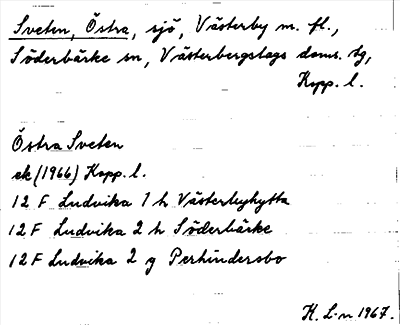 Sveten, Östra, sjö, Västerby m. fl.,
Söderbärke sn, Västerbergslags doms. tg,
Kopp. l.
Östra Sveten
ek (1966) Kopp. l.
12 F Ludvika 1 h Västerbyhytta
12 F Ludvika 2 h Söderbärke
12 F Ludvika 2 g Perhindersbo
H. L-n 1967.